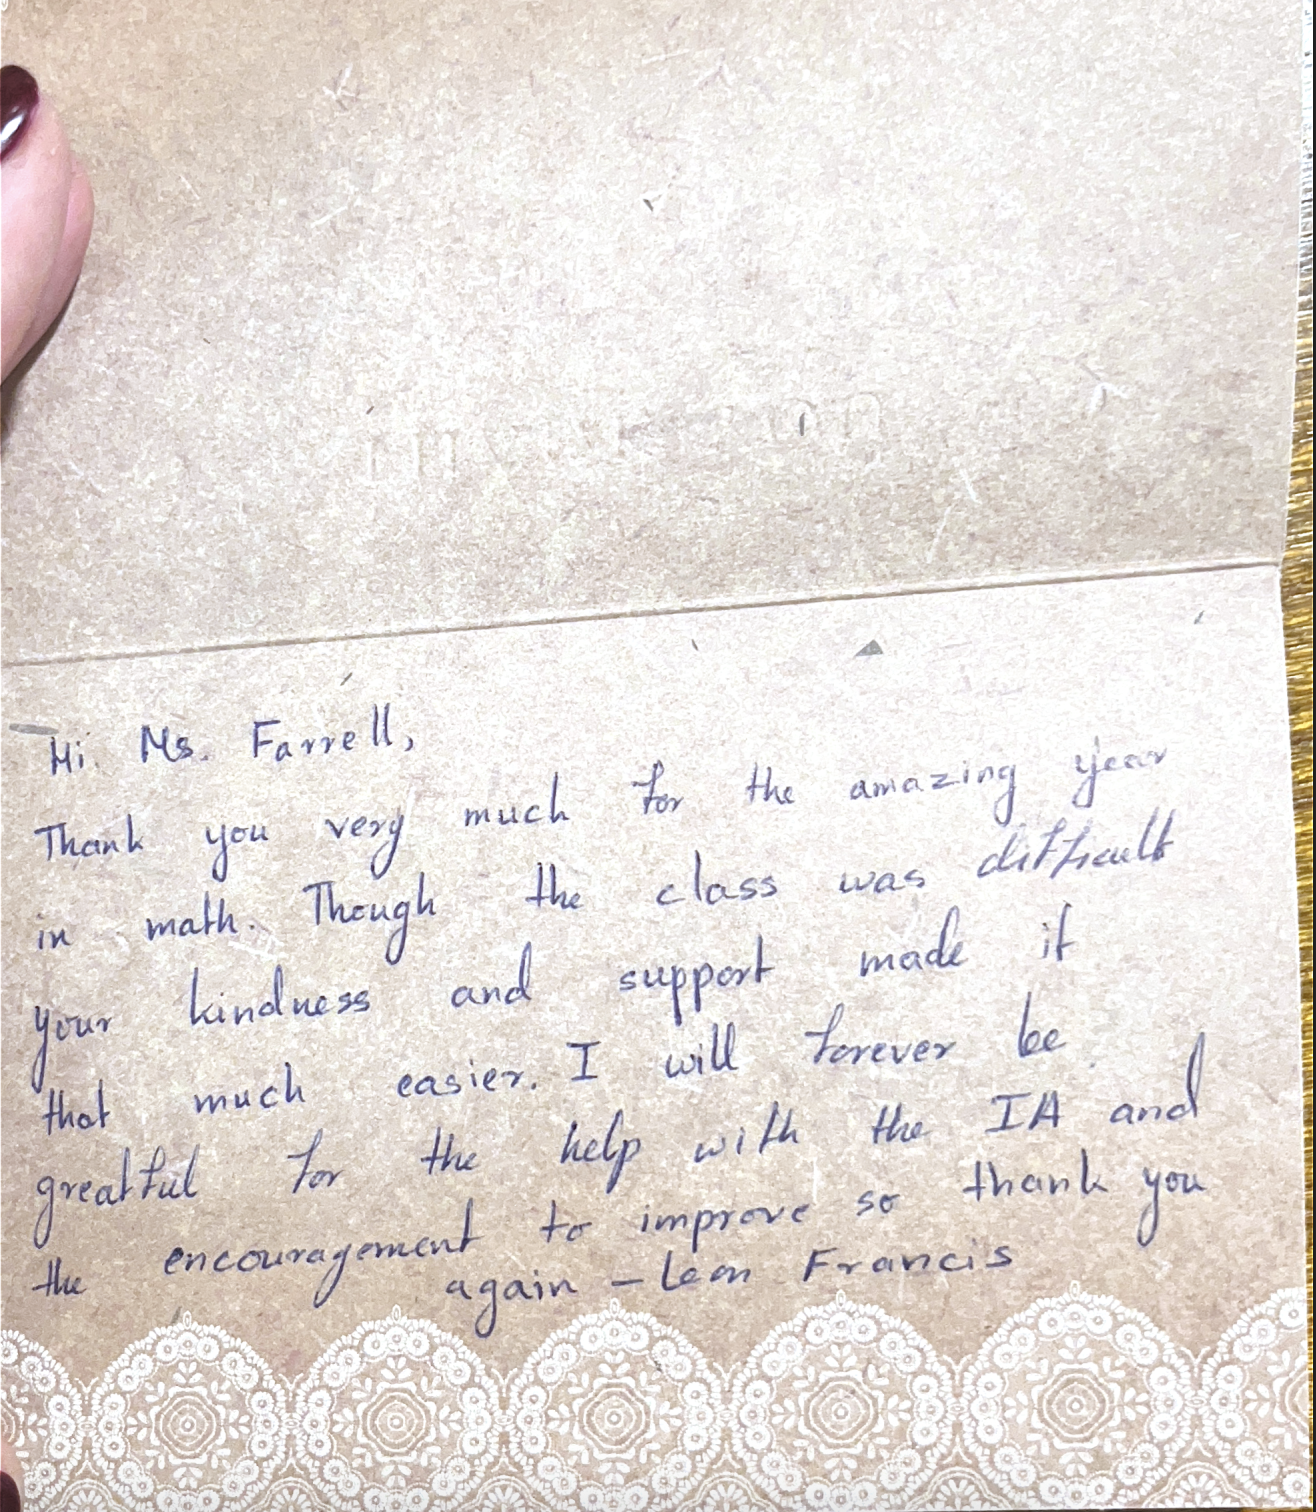 Hi. Ms. Farrell,
Thank you very much for the amazing year
in math. Though the class was difficult
your kindness and support made it
that much easier. I will forever be
greatful for the help with the IA and
the encouragement to improve so thank you
again – Leon Francis